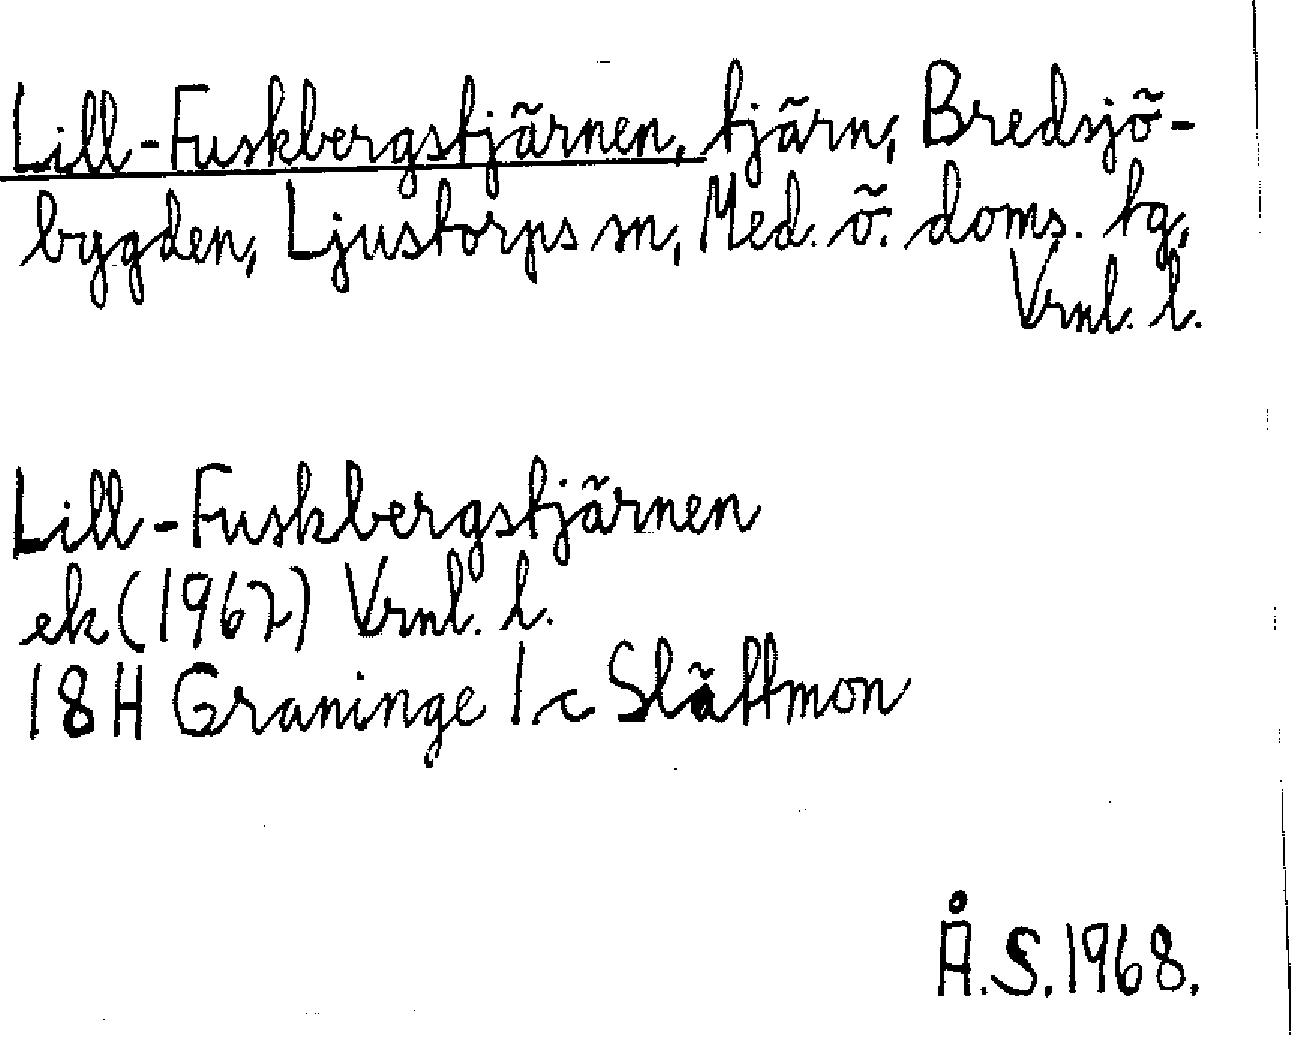 Lill-Fuskbergstjärnen, tjärn, Bredsjö-
bygden, Ljustorps sn, Med. ö. doms. tg,
Vrnl. l.
Lill-Fuskbergstjärnen
ek (1967) Vrnl. l.
18H Graninge 1.c Slättmon
Å.S. 1968.